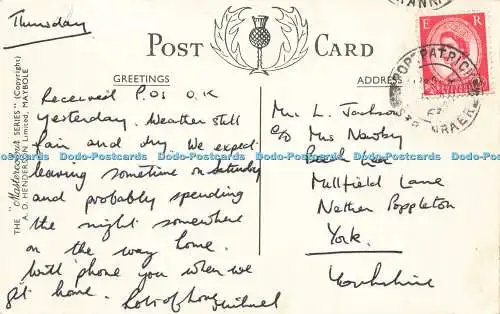 Thursday
POST CARD
GREETINGS
ADDRESS
THE "Mastercolour SERIES" (Copyright)
A. D. HENDERSON Limited, MAYBOLE
E R
PORTPATRICK
STRANRAER
Received P.Os O.K
yesterday. Weather still
fair and dry. We expect
leaving sometime on Saturday
and probably spending
the night somewhere
on the way home.
Will phone you when we
get home. Lots of love,
Mr. L. Jackson
c/o Mrs Newby
Millfield Lane
Nether Poppleton
York.
Yorkshire
Dodo-Postcards Dodo-Postcards Dodo-Postcards Dodo-Postcards Dodo-Postcards Dodo-Postcards